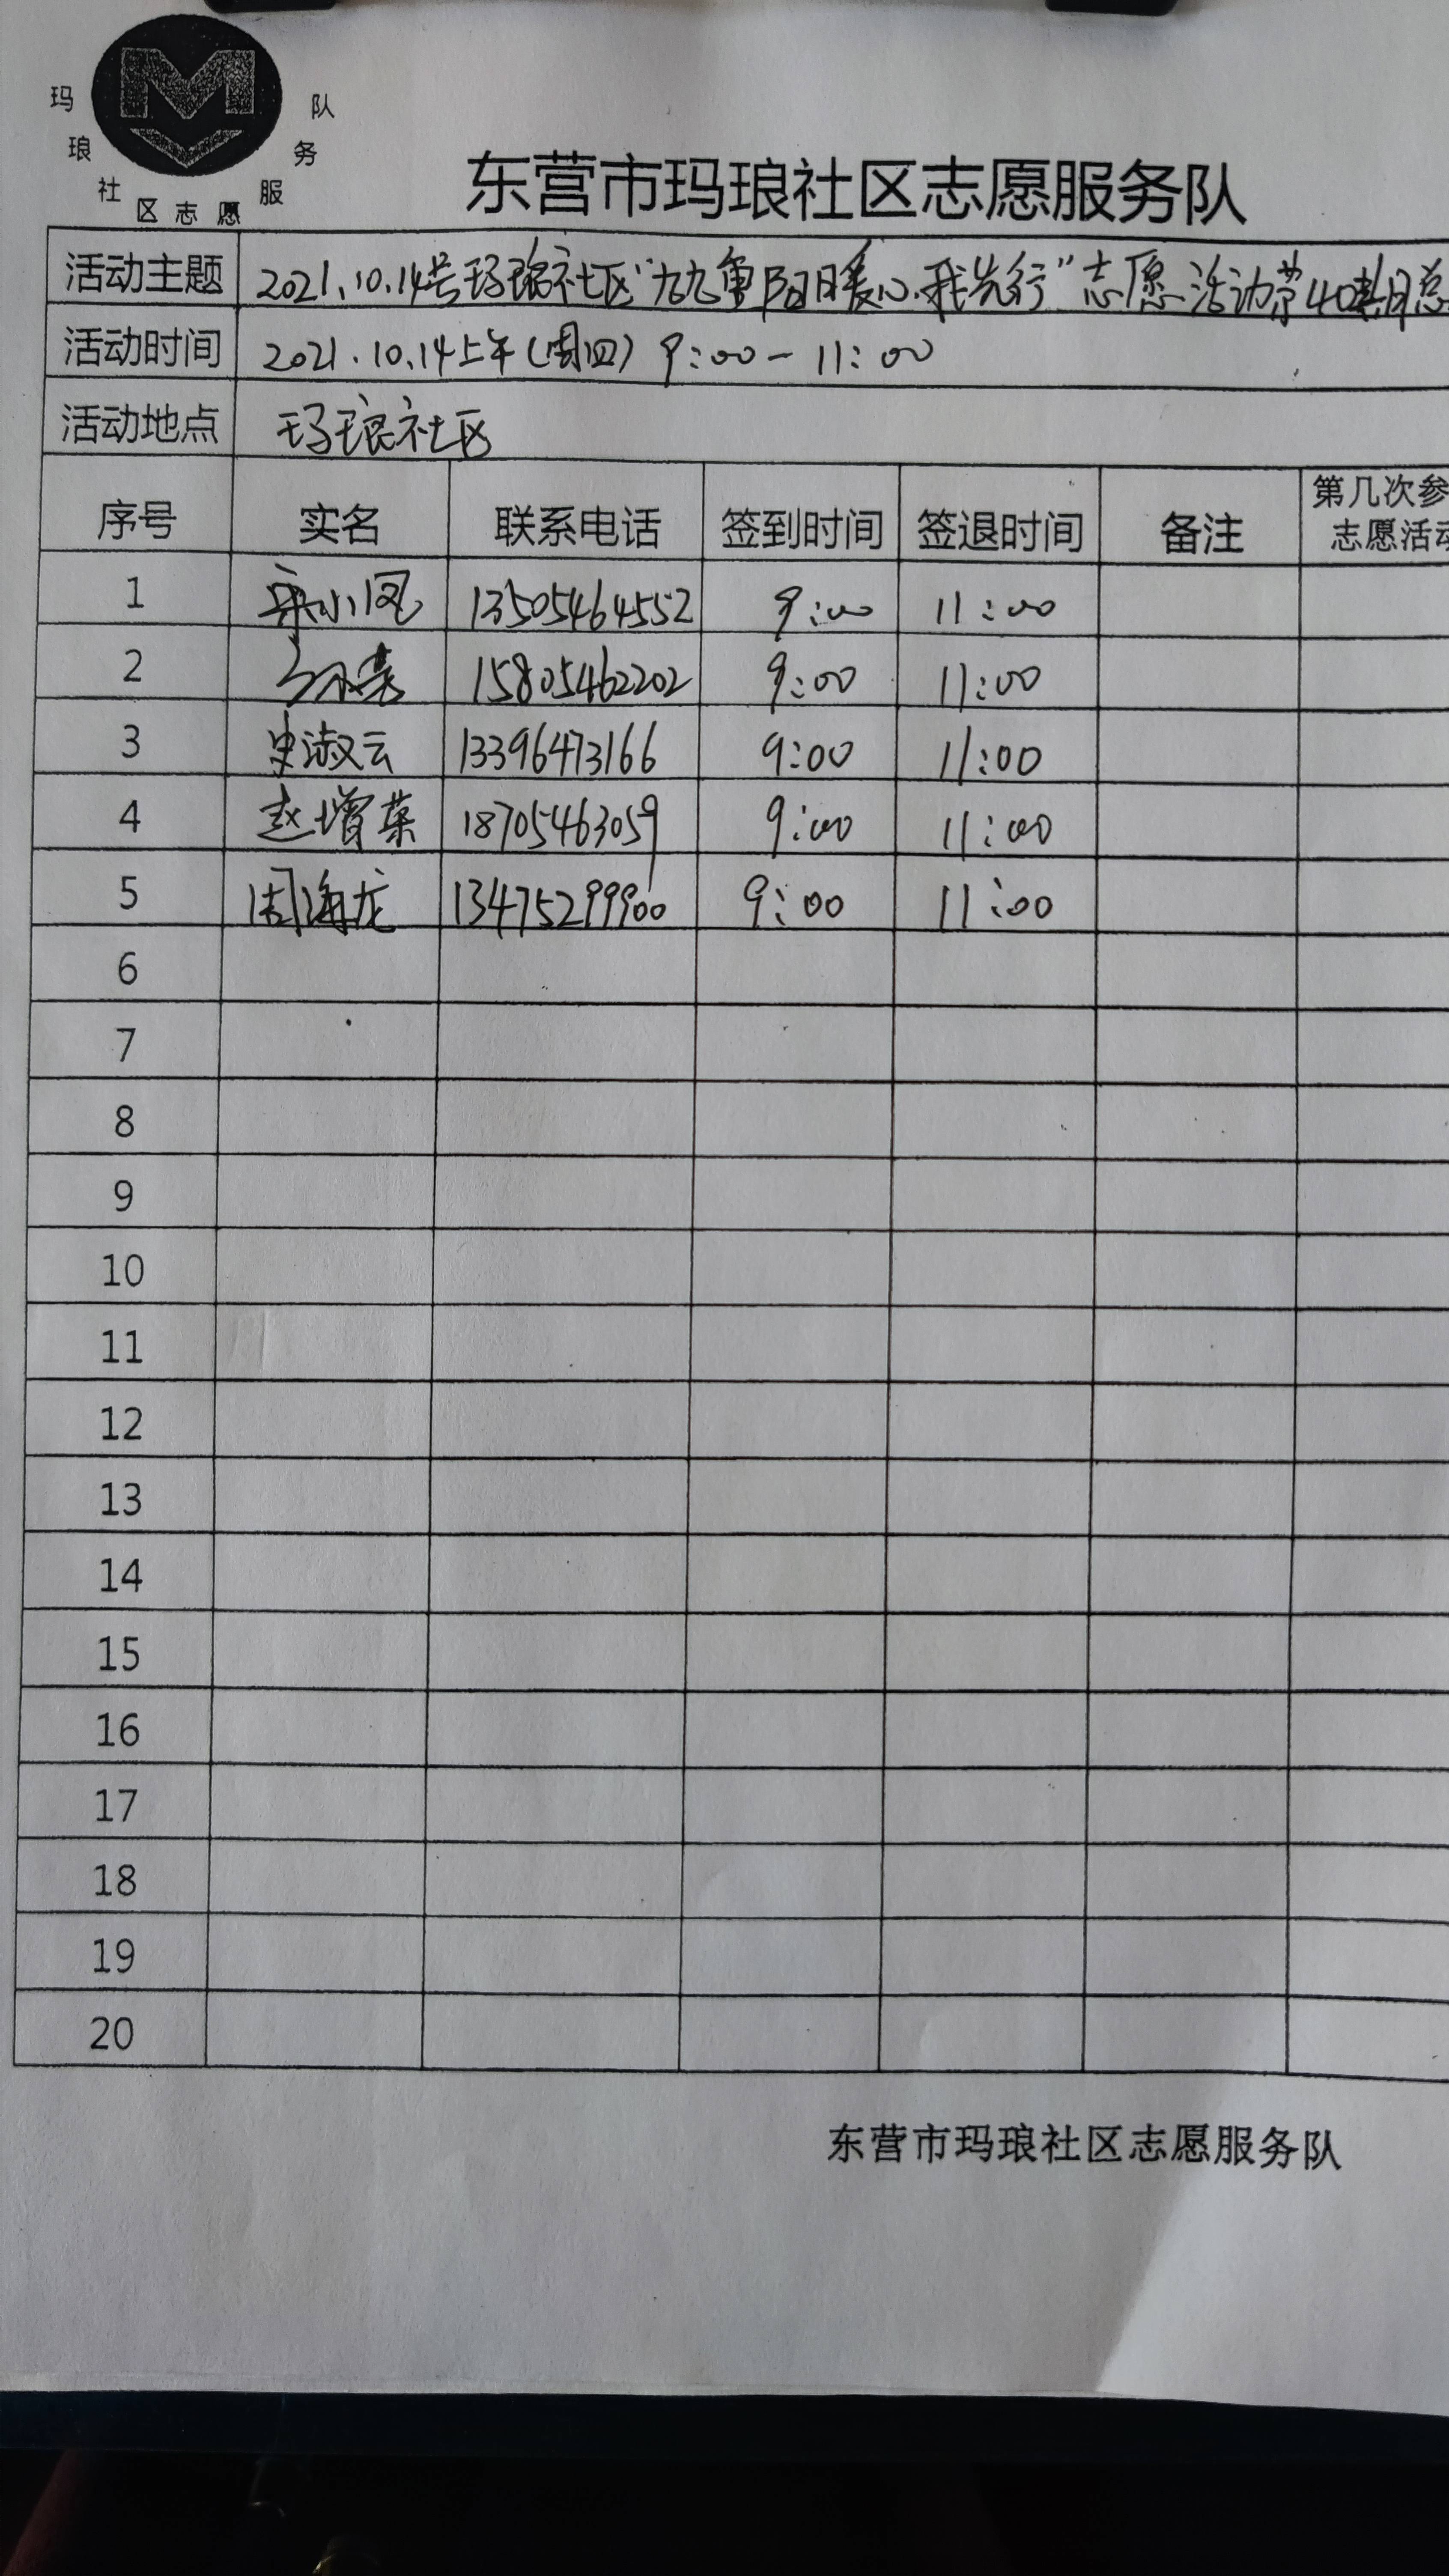 玛琅社区志愿服务队
东营市玛琅社区志愿服务队
活动主题 2021.10.14号玛琅社区"九九重阳日爱心.我先行"志愿活动第40期总
活动时间 2021.10.14上午(周四) 9:00-11:00
活动地点 玛琅社区
序号 实名 联系电话 签到时间 签退时间 备注 第几次参
志愿活动
1 小凤 13505464552 9:00 11:00
2 15805462202 9:00 11:00
3 史淑云 13396473166 9:00 11:00
4 赵增荣 18705463059 9:00 11:00
5 周海龙 13475299900 9:00 11:00
6
7
8
9
10
11
12
13
14
15
16
17
18
19
20
东营市玛琅社区志愿服务队